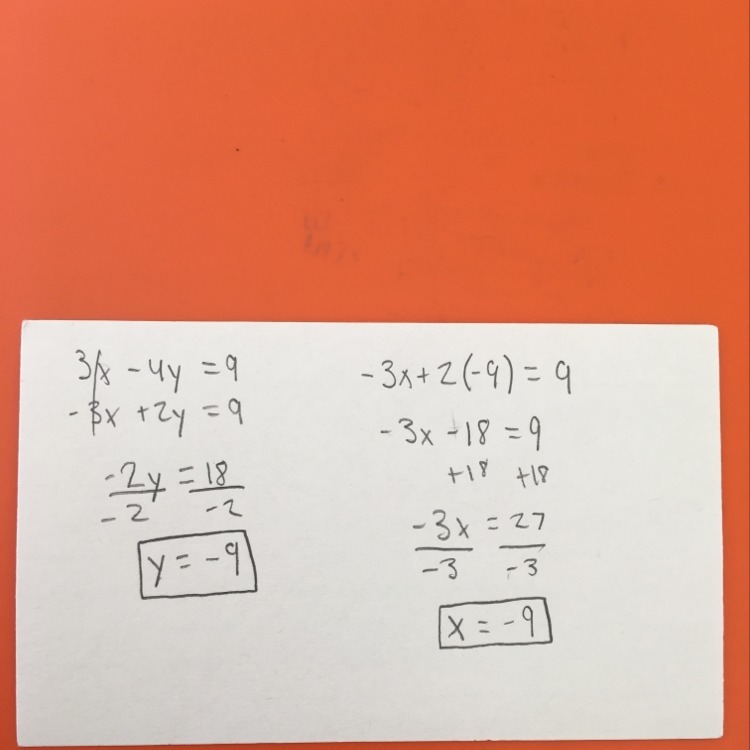 3x - 4y = 9
-3x + 2y = 9
-2y = 18
-2 -2
y = -9
-3x + 2(-9) = 9
-3x - 18 = 9
+18 +18
-3x = 27
-3 -3
x = -9